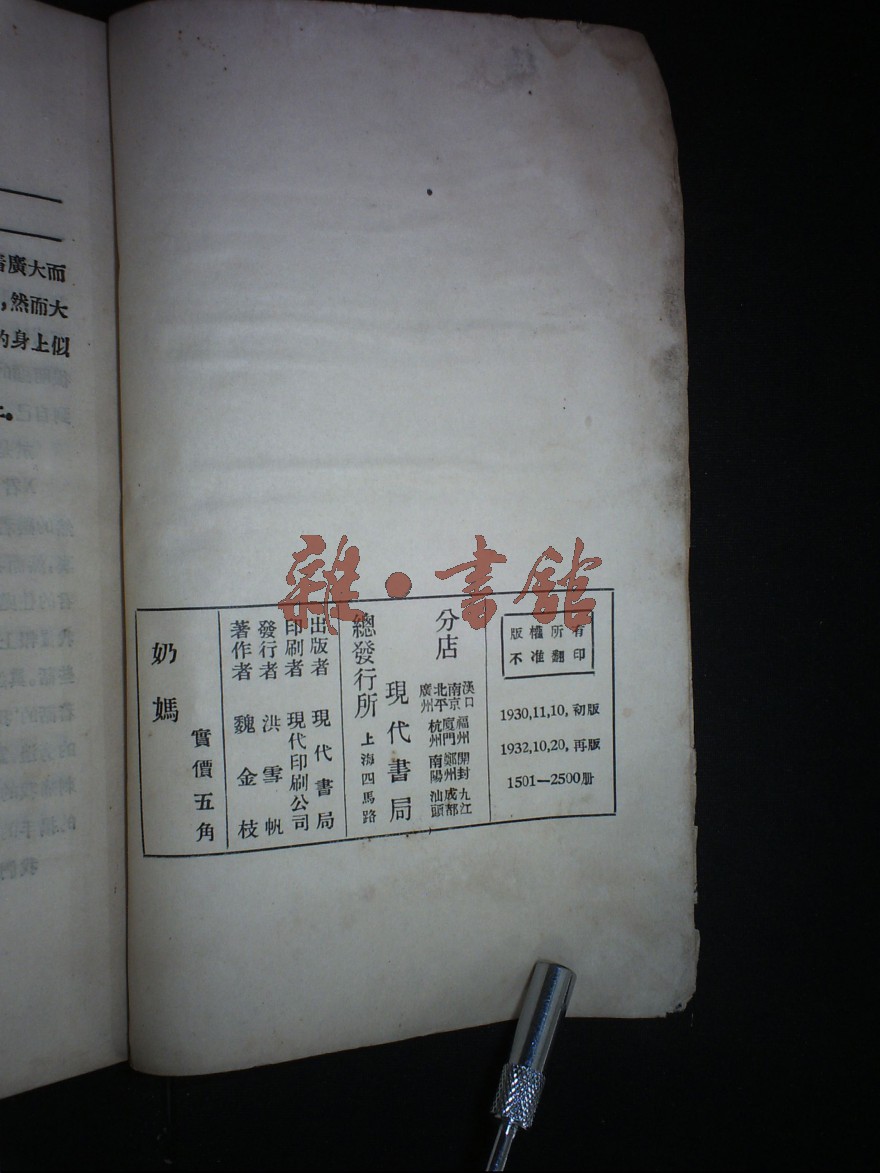 廣大而
，然而大
的身上似
。
雜·書館
版權所有
不准翻印
1930,11,10, 初版
1932,10,20, 再版
1501—2500册
分店
漢口 福州 開封 九江
南京 廈門 鄭州 成都
北平 杭州 南陽 汕頭
廣州
現代書局
總發行所 上海四馬路
出版者 現代書局
印刷者 現代印刷公司
發行者 洪雪帆
著作者 魏金枝
實價五角
奶媽